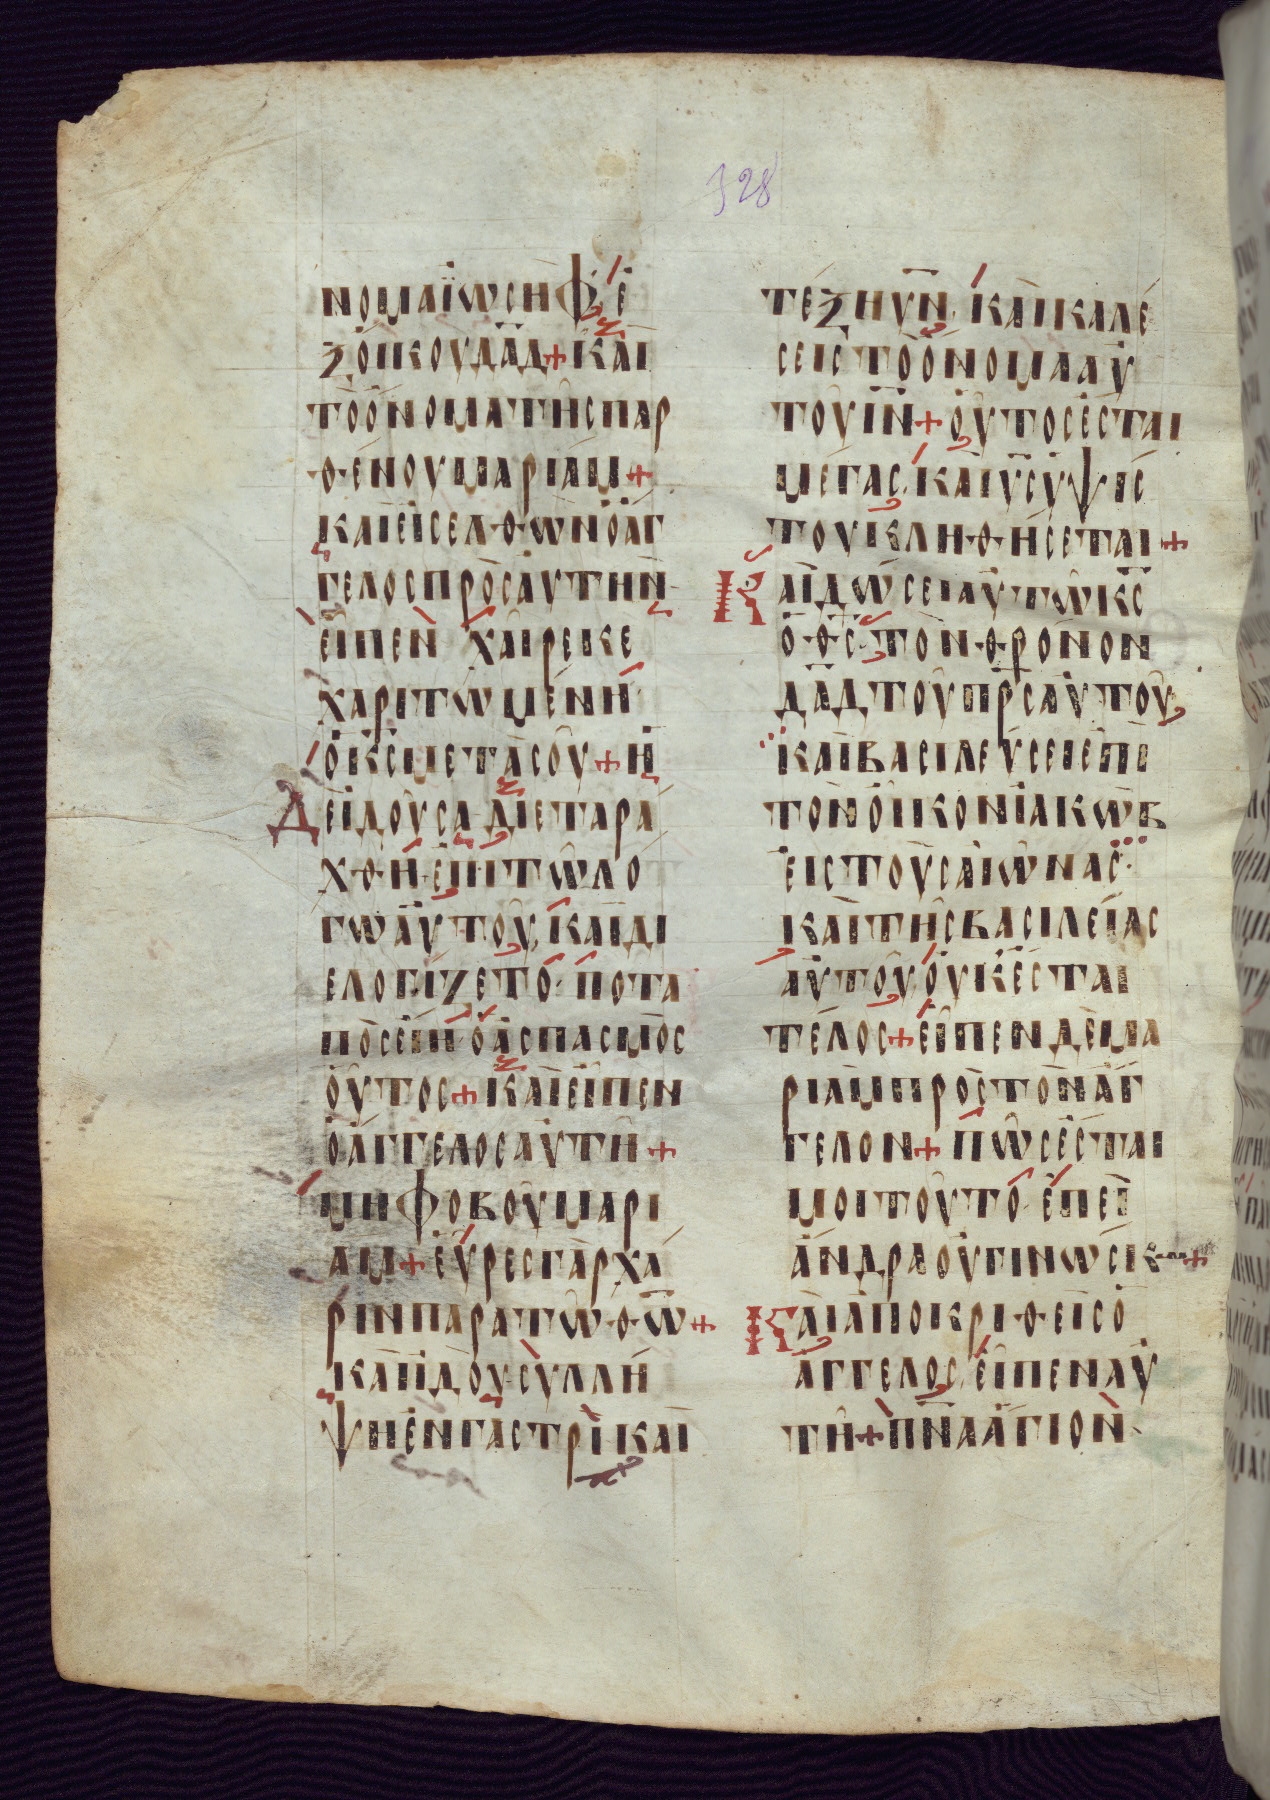 328
νομαἰωσὴφ ἐ
ξ ὄικου δ̅α̅δ̅ + καὶ
τὸ ὄνομα τῆς παρ
θένου μαριάμ +
καὶ εἰσελθὼν ὁ ἄγ
γελος πρὸς αὐτὴν
εἶπεν χαῖρε κε
χαριτωμένη
ὁ κ̅ς̅ μετὰ σοῦ + ἡ
Δὲ ἰδοῦσα διεταρά
χθη ἐπὶ τῶ λό
γω αὐτοῦ, καὶ δι
ελογίζετο· ποτα
πὸς εἴη ὁ ἀσπασμὸς
οὗτος + καὶ εἶπεν
ὁ ἄγγελος αὐτῆ +
μὴ φοβοῦ μαρι
ὰμ + εὗρες γὰρ χά
ριν παρὰ τῶ θ̅ω̅ +
καὶ ἰδοὺ συλλή
ψη ἐν γαστρὶ καὶ
τέξη υ̅ν̅, καὶ καλέ
σεις τὸ ὄνομα αὐ
τοῦ ι̅ν̅ + οὗτος ἔσται
μέγας, καὶ υ̅ς̅ ὑψίσ
του κληθήσεται +
Καὶ δώσει αὐτῶ κ̅ς̅
ὁ θ̅ς̅ τὸν θρόνον
δ̅α̅δ̅ τοῦ π̅ρ̅ς̅ αὐτοῦ,
καὶ βασιλεύσει ἐπὶ
τὸν ὄικον ἰακὼβ
εἰς τοὺς αἰῶνας·
καὶ τῆς βασιλείας
αὐτοῦ, οὐκ ἔσται
τέλος + εἶπεν δὲ μα
ριὰμ πρὸς τὸν ἄγ
γελον + πῶς ἔσται
μοι τοῦτο· ἐπεὶ
ἄνδρα οὐ γινώσκ +
Καὶ ἀποκριθεὶς ὁ
ἄγγελος, εἶπεν αὐ
τῆ + π̅ν̅α̅ ἅγιον